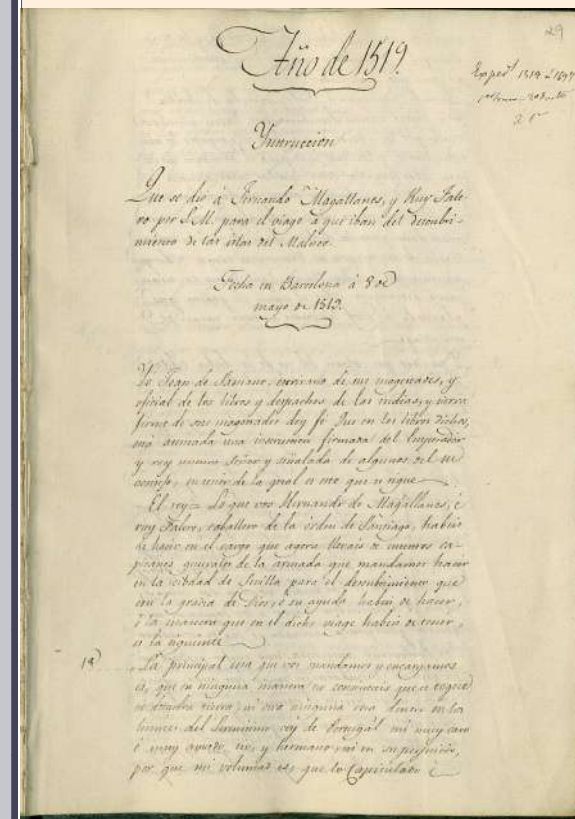 29
Año de 1519.
Exped.^te 1519 á 1547
Ynstruccion
Que se dió á Fernando Magallanes, y Ruy Fale-
ro por S.M. para el viage á que iban del descubri-
miento de las islas del Maluco.
Fecha en Barcelona á 8 de
mayo de 1519.
Yo Juan de Samano, escrivano de sus magestades, y
oficial de los libros y despachos de las indias, y tierra
firme de sus magestades doy fé Que en los libros dichos,
está asentada una instruccion firmada del Emperador
y rey nuestro señor y señalada de algunos del su
consejo, su tenor de la qual es este que se sigue
El rey = Lo que vos Hernando de Magallanes, é
ruy Falero, caballeros de la órden de Santiago, habeis
de hacer en el cargo que agora llevais de nuestros ca-
pitanes generales de la armada que mandamos hacer
en la cibdad de Sevilla para el descubrimiento que
con la gracia de Dios, é su ayuda habeis de hacer,
é la manera que en el dicho viage habeis de tener,
es la siguiente
1ª La principal cosa que vos mandamos y encargamos
es, que en ninguna manera no consintais que se toque
ni descubra tierra, ni otra ninguna cosa dentro en los
limites del Serenisimo rey de Portugál mi muy caro
é muy amado tio, y hermano, ni en su perjuicio,
por que mi voluntad es, que lo capitulado é